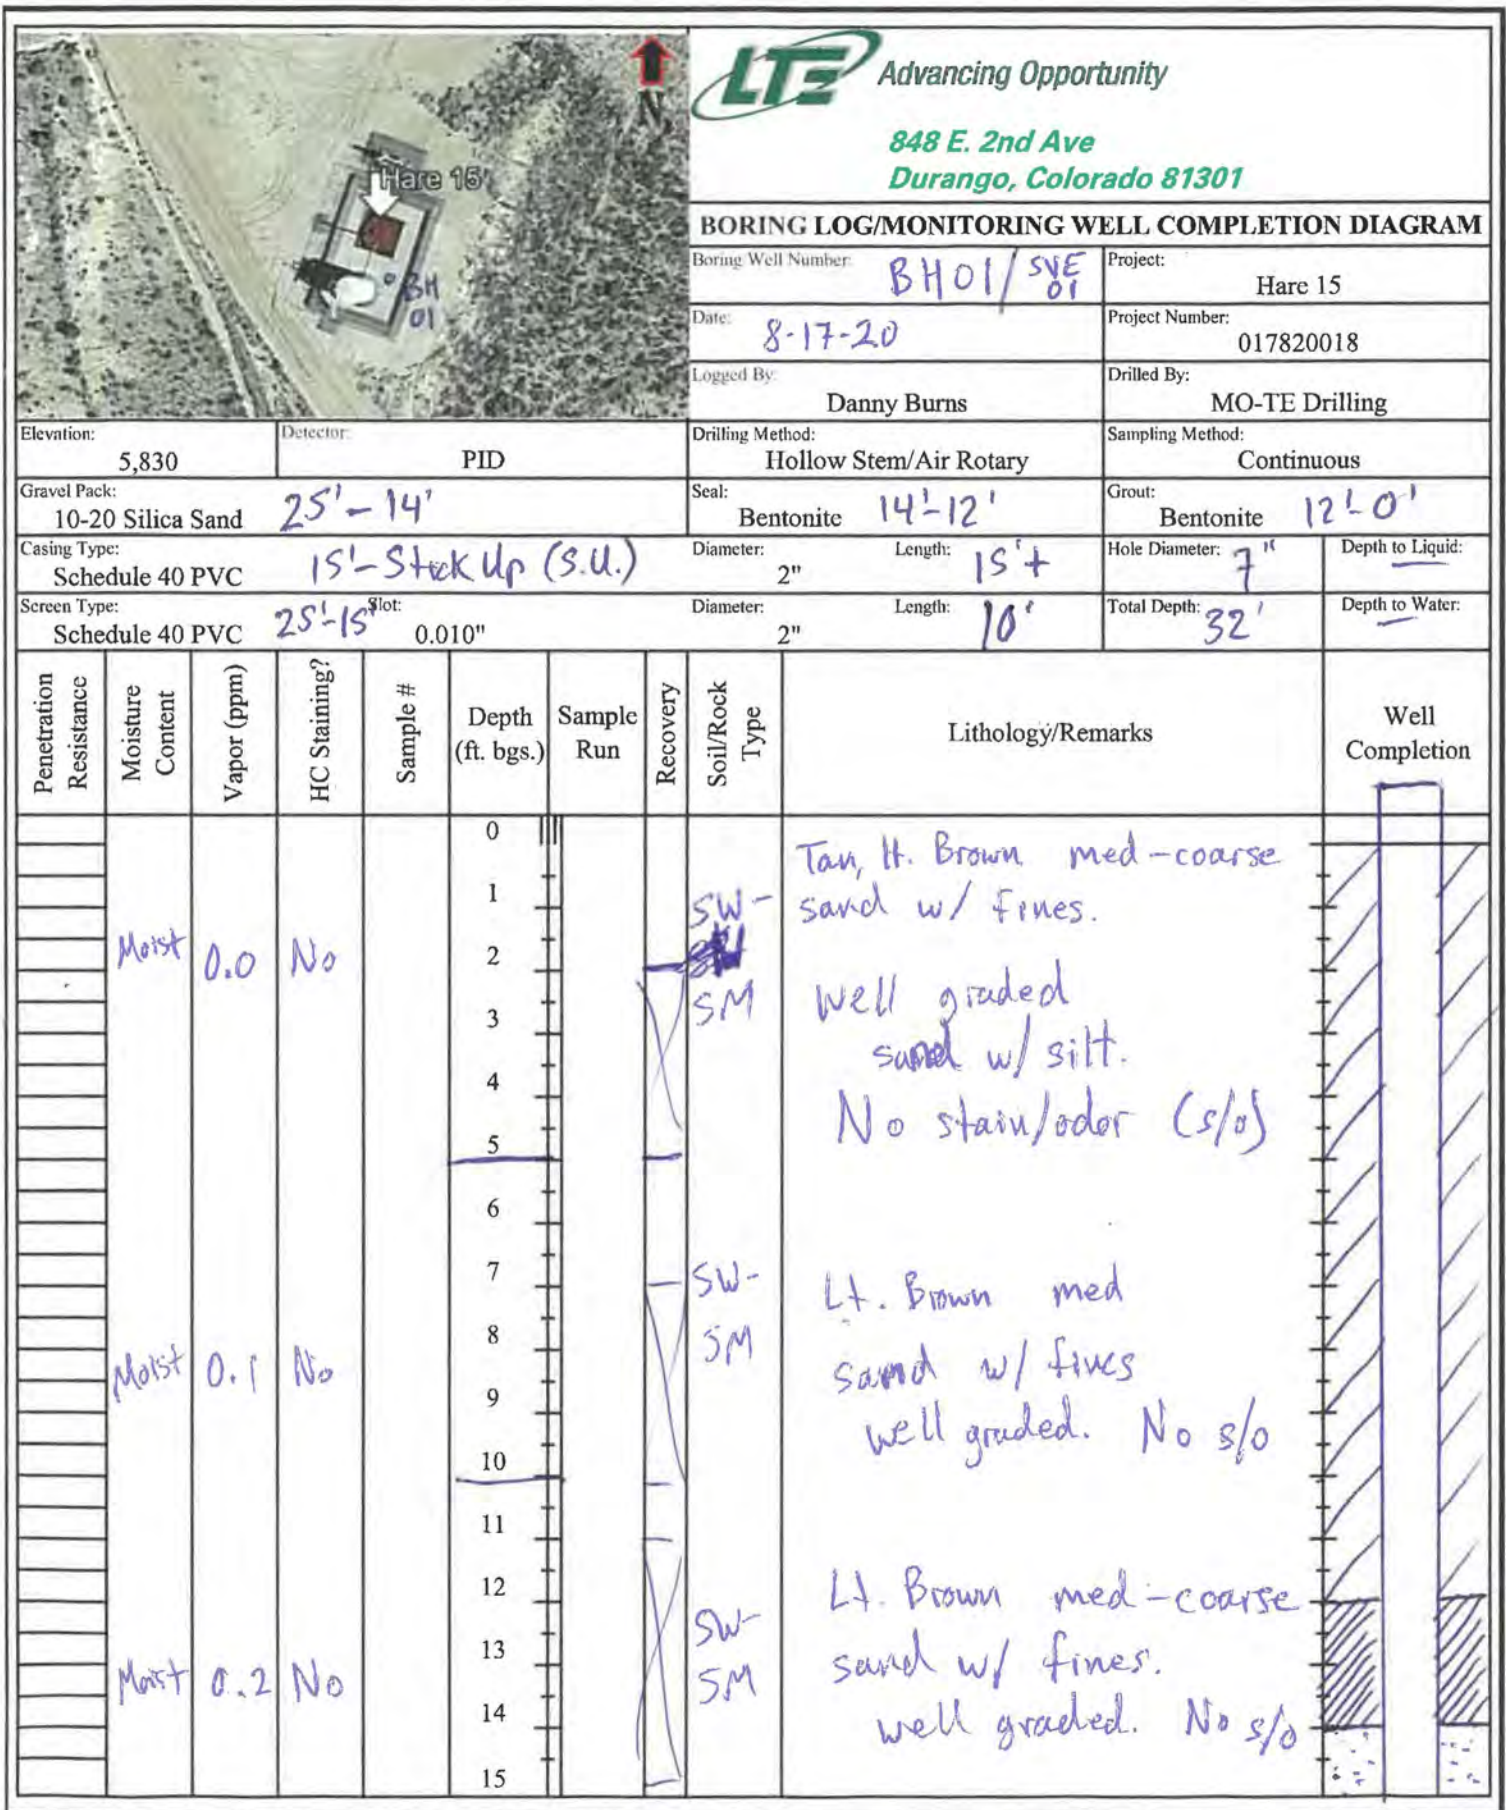 Hare 15
BH
01
N
LTE Advancing Opportunity
848 E. 2nd Ave
Durango, Colorado 81301
BORING LOG/MONITORING WELL COMPLETION DIAGRAM
Boring Well Number: BH01/SVE 01
Project: Hare 15
Date: 8-17-20
Project Number: 017820018
Logged By: Danny Burns
Drilled By: MO-TE Drilling
Elevation: 5,830
Detector: PID
Drilling Method: Hollow Stem/Air Rotary
Sampling Method: Continuous
Gravel Pack: 10-20 Silica Sand 25'-14'
Seal: Bentonite 14'-12'
Grout: Bentonite 12'-0'
Casing Type: Schedule 40 PVC 15'-Stick Up (S.U.)
Diameter: 2"
Length: 15'+
Hole Diameter: 7"
Depth to Liquid:
Screen Type: Schedule 40 PVC 25'-15'
Slot: 0.010"
Diameter: 2"
Length: 10'
Total Depth: 32'
Depth to Water:
Penetration Resistance
Moisture Content
Vapor (ppm)
HC Staining?
Sample #
Depth (ft. bgs.)
Sample Run
Recovery
Soil/Rock Type
Lithology/Remarks
Well Completion
0
Tan, lt. Brown med-coarse
1 SW- sand w/ fines.
Moist 0.0 No 2
SM well graded
3
sand w/ silt.
4
No stain/odor (s/o)
5
6
7 SW- Lt. Brown med
8 SM
Moist 0.1 No sand w/ fines
9
well graded. No s/o
10
11
12 Lt. Brown med-coarse
SW-
13 sand w/ fines.
Moist 0.2 No SM
14 well graded. No s/o
15